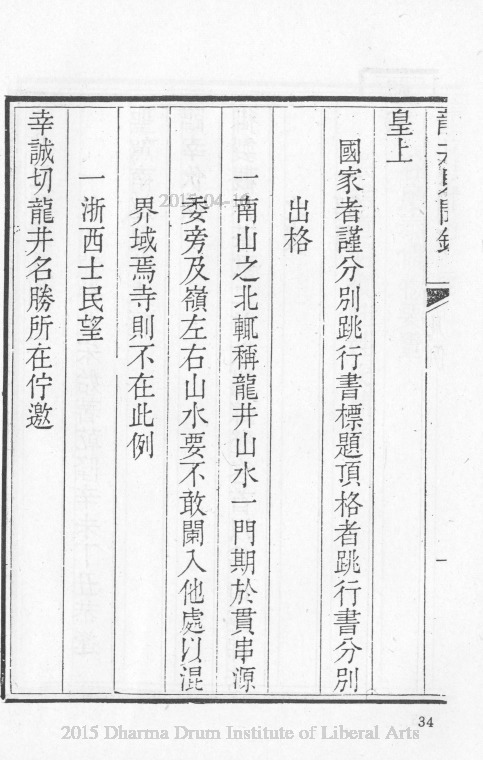 龍井見聞錄
一
皇上
國家者謹分別跳行書標題頂格者跳行書分別
出格
一南山之北輒稱龍井山水一門期於貫串源
委旁及嶺左右山水要不敢闌入他處以混
界域焉寺則不在此例
一浙西士民望
幸誠切龍井名勝所在佇邀
34
2015 Dharma Drum Institute of Liberal Arts